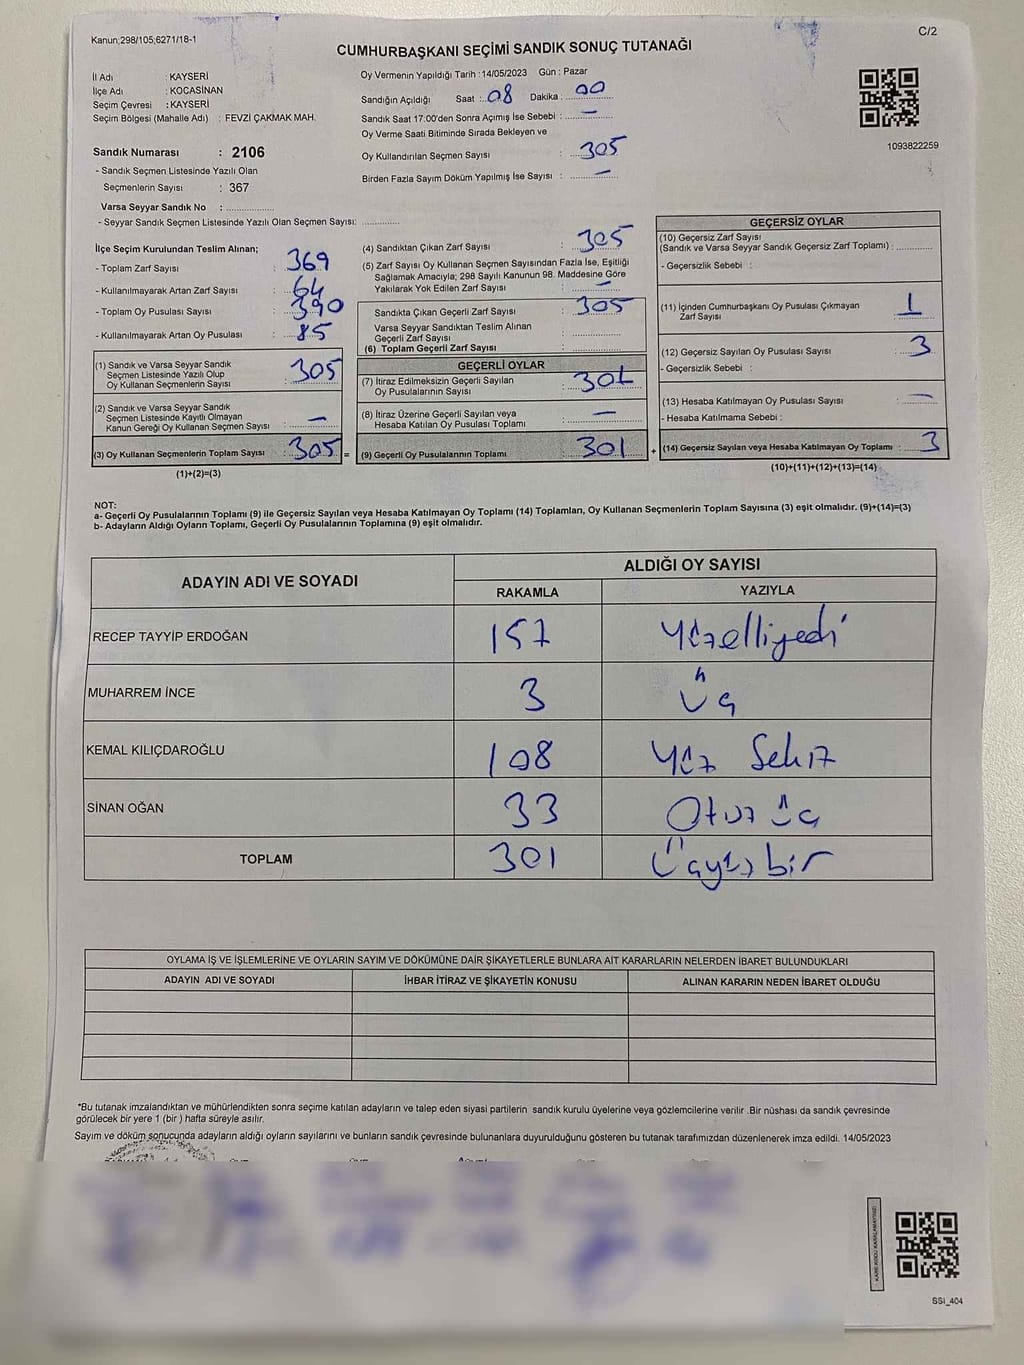 Kanun;298/105;6271/18-1
C/2
CUMHURBAŞKANI SEÇİMİ SANDIK SONUÇ TUTANAĞI
İl Adı : KAYSERİ
İlçe Adı : KOCASİNAN
Seçim Çevresi : KAYSERİ
Seçim Bölgesi (Mahalle Adı) : FEVZİ ÇAKMAK MAH.
Oy Vermenin Yapıldığı Tarih : 14/05/2023 Gün : Pazar
Sandığın Açıldığı Saat : 08 Dakika : 00
Sandık Saat 17.00'den Sonra Açımış İse Sebebi : —
Oy Verme Saati Bitiminde Sırada Bekleyen ve
Oy Kullandırılan Seçmen Sayısı : 305
Birden Fazla Sayım Döküm Yapılmış İse Sayısı : —
1093822259
Sandık Numarası : 2106
- Sandık Seçmen Listesinde Yazılı Olan
Seçmenlerin Sayısı : 367
Varsa Seyyar Sandık No :
- Seyyar Sandık Seçmen Listesinde Yazılı Olan Seçmen Sayısı:
İlçe Seçim Kurulundan Teslim Alınan;
- Toplam Zarf Sayısı : 369
- Kullanılmayarak Artan Zarf Sayısı : 64
- Toplam Oy Pusulası Sayısı : 390
- Kullanılmayarak Artan Oy Pusulası : 85
(1) Sandık ve Varsa Seyyar Sandık
Seçmen Listesinde Yazılı Olup
Oy Kullanan Seçmenlerin Sayısı : 305
(2) Sandık ve Varsa Seyyar Sandık
Seçmen Listesinde Kayıtlı Olmayan
Kanun Gereği Oy Kullanan Seçmen Sayısı : —
(3) Oy Kullanan Seçmenlerin Toplam Sayısı : 305 =
(1)+(2)=(3)
(4) Sandıktan Çıkan Zarf Sayısı : 305
(5) Zarf Sayısı Oy Kullanan Seçmen Sayısından Fazla İse, Eşitliği
Sağlamak Amacıyla; 298 Sayılı Kanunun 98. Maddesine Göre
Yakılarak Yok Edilen Zarf Sayısı : —
Sandıkta Çıkan Geçerli Zarf Sayısı : 305
Varsa Seyyar Sandıktan Teslim Alınan
Geçerli Zarf Sayısı :
(6) Toplam Geçerli Zarf Sayısı :
GEÇERLİ OYLAR
(7) İtiraz Edilmeksizin Geçerli Sayılan
Oy Pusulalarının Sayısı :
(8) İtiraz Üzerine Geçerli Sayılan veya
Hesaba Katılan Oy Pusulası Toplamı : —
(9) Geçerli Oy Pusulalarının Toplamı : 301 +
GEÇERSİZ OYLAR
(10) Geçersiz Zarf Sayısı
(Sandık ve Varsa Seyyar Sandık Geçersiz Zarf Toplamı) :
- Geçersizlik Sebebi :
(11) İçinden Cumhurbaşkanı Oy Pusulası Çıkmayan
Zarf Sayısı : 1
(12) Geçersiz Sayılan Oy Pusulası Sayısı : 3
- Geçersizlik Sebebi :
(13) Hesaba Katılmayan Oy Pusulası Sayısı : —
- Hesaba Katılmama Sebebi :
(14) Geçersiz Sayılan veya Hesaba Katılmayan Oy Toplamı : 3
(10)+(11)+(12)+(13)=(14)
NOT:
a- Geçerli Oy Pusulalarının Toplamı (9) ile Geçersiz Sayılan veya Hesaba Katılmayan Oy Toplamı (14) Toplamları, Oy Kullanan Seçmenlerin Toplam Sayısına (3) eşit olmalıdır. (9)+(14)=(3)
b- Adayların Aldığı Oyların Toplamı, Geçerli Oy Pusulalarının Toplamına (9) eşit olmalıdır.
ADAYIN ADI VE SOYADI
ALDIĞI OY SAYISI
RAKAMLA YAZIYLA
RECEP TAYYİP ERDOĞAN 157 Yüzelliyedi
MUHARREM İNCE 3 Üç
KEMAL KILIÇDAROĞLU 108 Yüz Sekiz
SİNAN OĞAN 33 Otuz üç
TOPLAM 301 Üçyüz bir
OYLAMA İŞ VE İŞLEMLERİNE VE OYLARIN SAYIM VE DÖKÜMÜNE DAİR ŞİKAYETLERLE BUNLARA AİT KARARLARIN NELERDEN İBARET BULUNDUKLARI
ADAYIN ADI VE SOYADI İHBAR İTİRAZ VE ŞİKAYETİN KONUSU ALINAN KARARIN NEDEN İBARET OLDUĞU
*Bu tutanak imzalandıktan ve mühürlendikten sonra seçime katılan adayların ve talep eden siyasi partilerin sandık kurulu üyelerine veya gözlemcilerine verilir .Bir nüshası da sandık çevresinde
görülecek bir yere 1 (bir ) hafta süreyle asılır.
Sayım ve döküm sonucunda adayların aldığı oyların sayılarını ve bunların sandık çevresinde bulunanlara duyurulduğunu gösteren bu tutanak tarafımızdan düzenlenerek imza edildi. 14/05/2023
KARE KODU KARALAMAYINIZ!
SSI_404